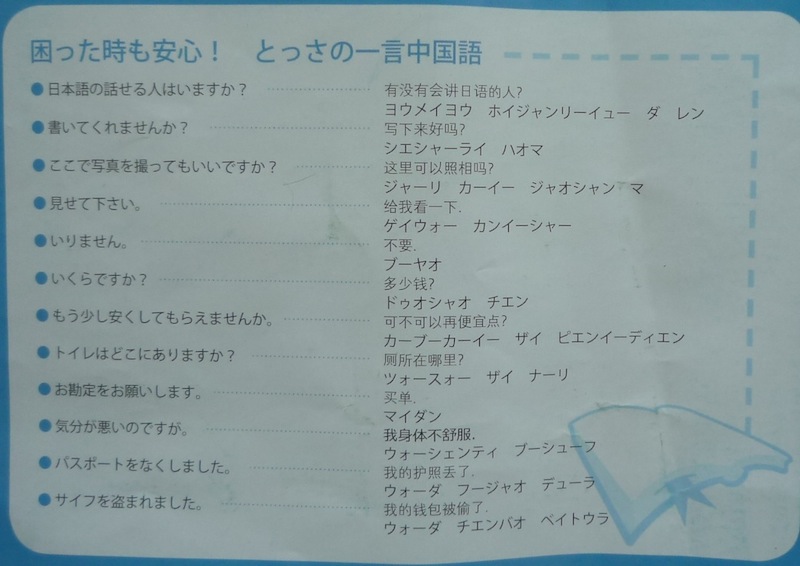 困った時も安心！ とっさの一言中国語
●日本語の話せる人はいますか？ 有没有会讲日语的人?
ヨウメイヨウ ホイジャンリーイュー ダ レン
●書いてくれませんか？ 写下来好吗?
シエシャーライ ハオマ
●ここで写真を撮ってもいいですか？ 这里可以照相吗?
ジャーリ カーイー ジャオシャン マ
●見せて下さい。 给我看一下.
ゲイウォー カンイーシャー
●いりません。 不要.
ブーヤオ
●いくらですか？ 多少钱?
ドゥオシャオ チエン
●もう少し安くしてもらえませんか。 可不可以再便宜点?
カーブーカーイー ザイ ピエンイーディエン
●トイレはどこにありますか？ 厕所在哪里?
ツォースォー ザイ ナーリ
●お勘定をお願いします。 买单.
マイダン
●気分が悪いのですが。 我身体不舒服.
ウォーシェンティ ブーシューフ
●パスポートをなくしました。 我的护照丢了.
ウォーダ フージャオ デューラ
●サイフを盗まれました。 我的钱包被偷了.
ウォーダ チエンバオ ベイトウラ